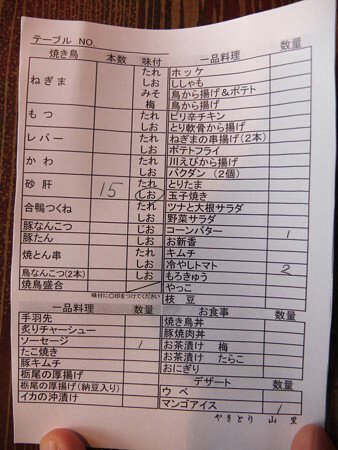 テーブル NO.
焼き鳥 本数 味付 一品料理 数量
ねぎま たれ ホッケ
しお ししゃも
みそ 鳥から揚げ&ポテト
梅 鳥から揚げ
もつ たれ ピリ辛チキン
しお とり軟骨から揚げ
レバー たれ ねぎまの串揚げ(2本)
しお ポテトフライ
かわ たれ 川えびから揚げ
しお バクダン (2個)
砂肝 15 たれ とりたま
しお 玉子焼き
合鴨つくね たれ ツナと大根サラダ
しお 野菜サラダ
豚なんこつ じお コーンバター 1
豚たん しお お新香
焼とん串 たれ キムチ
しお 冷やしトマト 2
鳥なんこつ(2本) しお もろきゅう
焼鳥盛合 やっこ
味付に〇印をつけてください 枝豆
一品料理 数量 お食事
手羽先 焼き鳥丼
炙りチャーシュー 豚焼肉丼
ソーセージ 1 お茶漬け 梅
たこ焼き お茶漬け たらこ
豚キムチ おにぎり
栃尾の厚揚げ デザート
栃尾の厚揚げ(納豆入り) ウベ
イカの沖漬け マンゴアイス 1
やきとり 山里